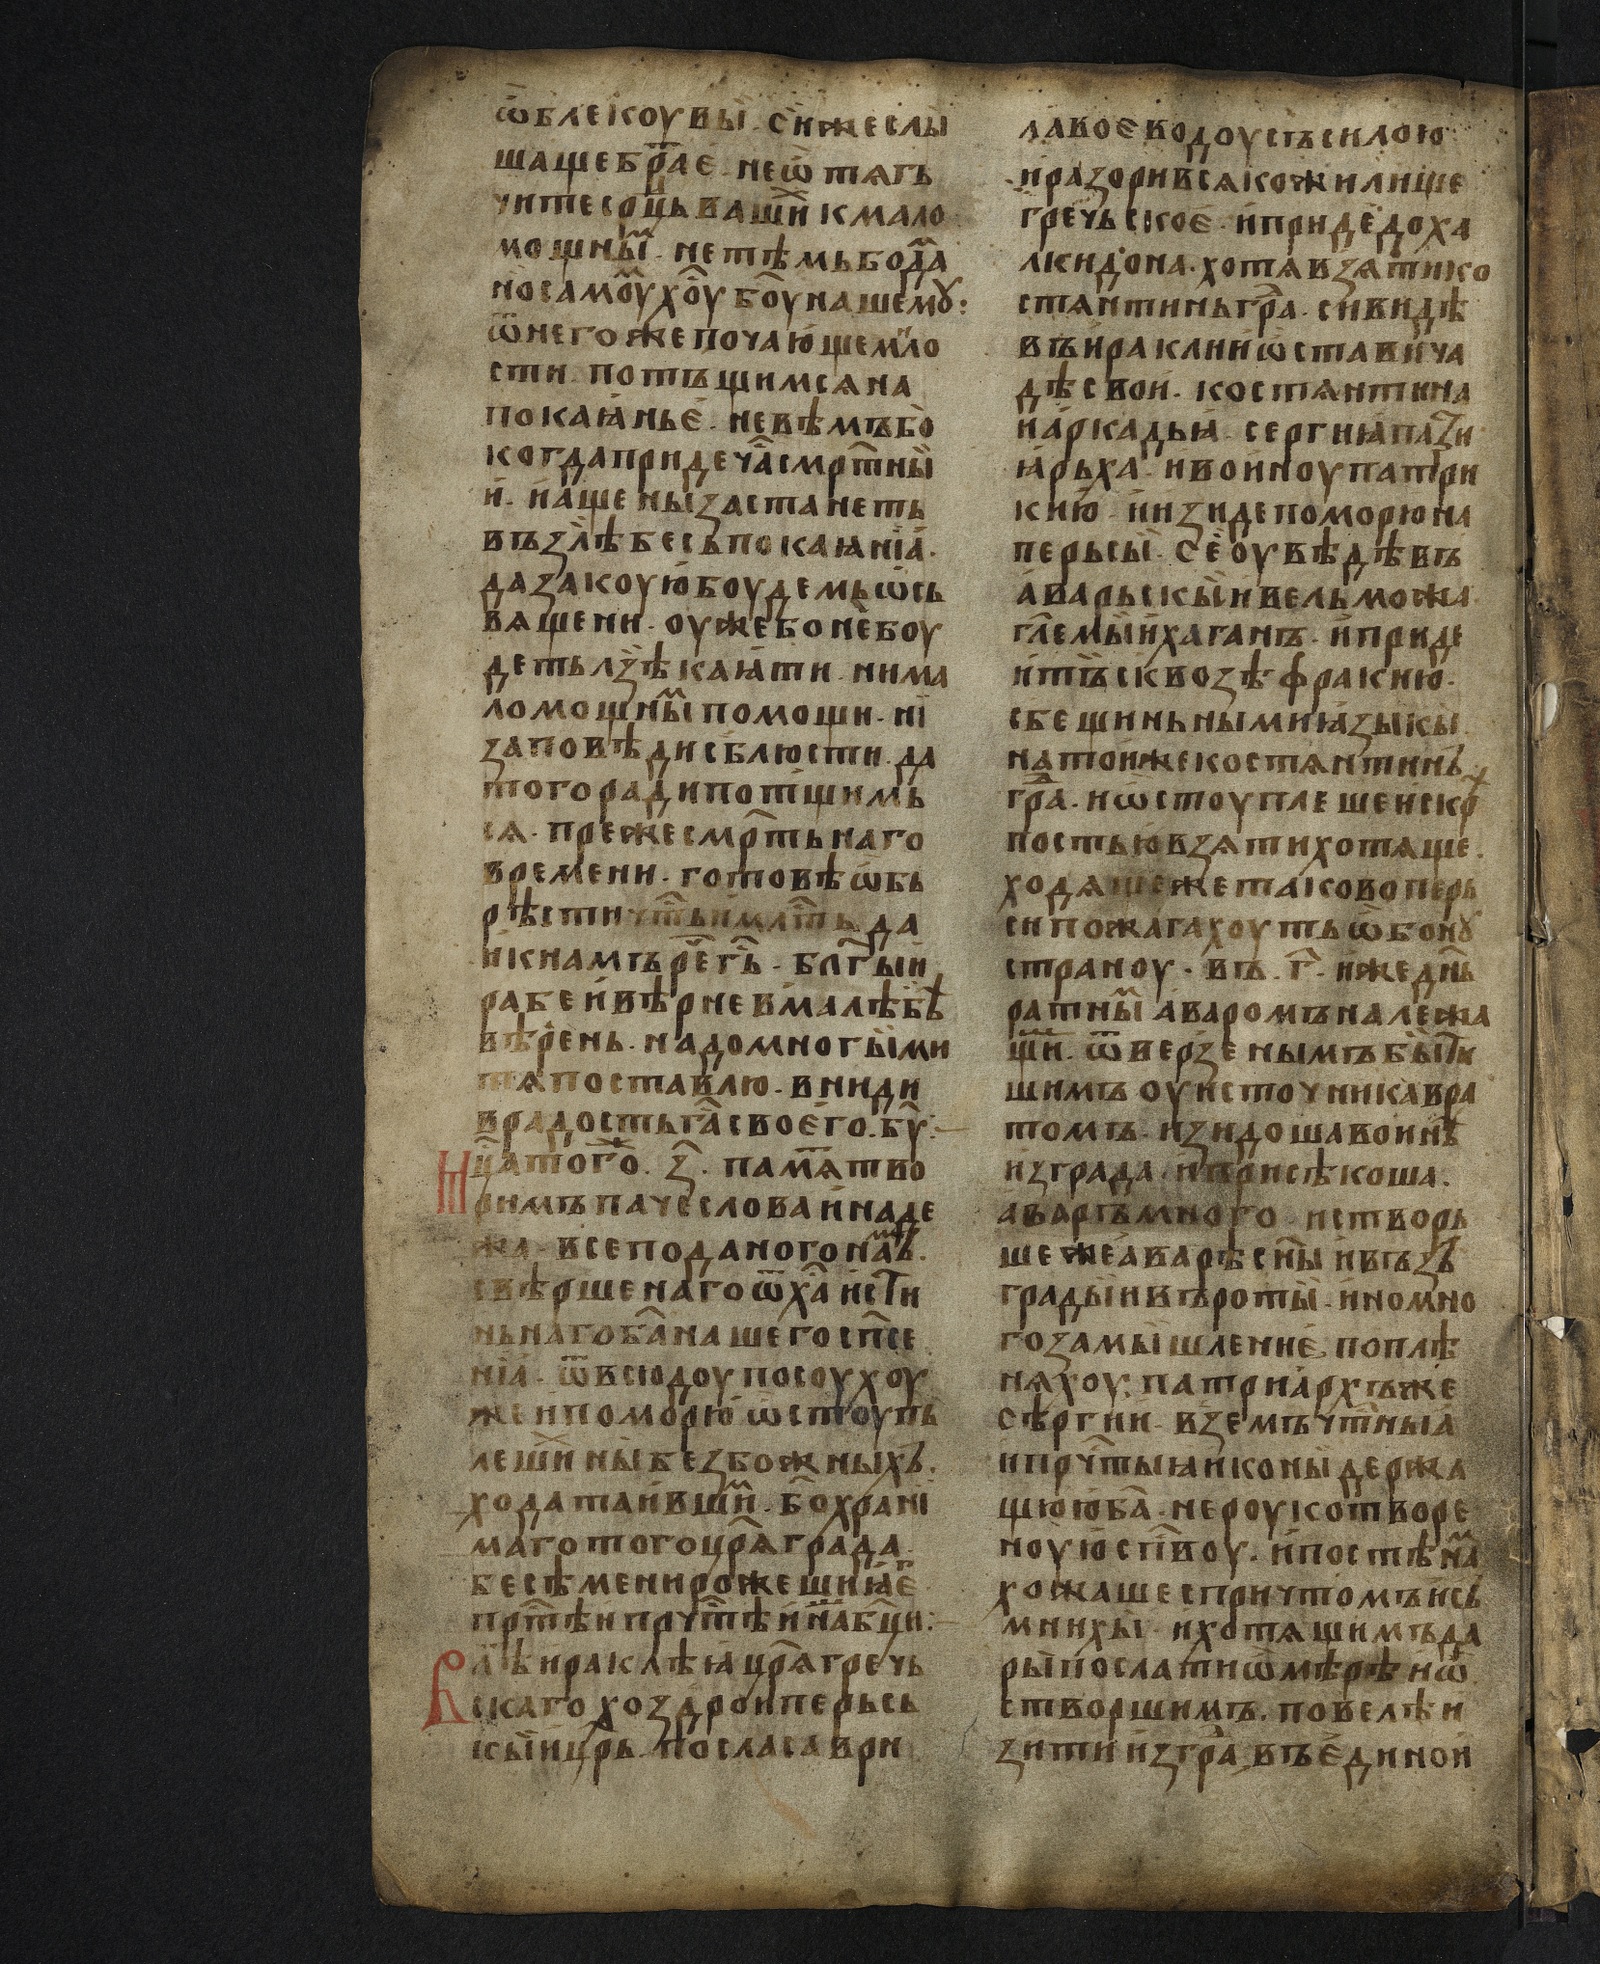 ѡ҆блекоу вы. си же слы
шаще бра̑е. не ѡ҆тѧгъ
чите ср҃ць ваши к мало
мощны̑. не тѣмь бо да̑
но самоу хо̑у бо̑у нашему:
ѿ него же почающе мл҃о
сти. потъщимсѧ на
покаꙗнье. не вѣмъ бо
когда придеть ча̑ смр҃тны
и. и аще ны застанеть
въ злѣ бесъ покаꙗниꙗ.
да за коую боудемь ѡсь
вѧщени. оуже бо не боу
деть лзѣ каꙗти. ни ма
ломощны̑ помощи. нi
заповѣди сблюсти. да
того ради потщимь
сѧ. преже смр҃тьнаго
времени. готовѣ ѡбь
рѣсти чт҃ь и мл҃ть да
и к намъ ре҃ г҃ь. бл҃гыи
рабе и вѣрне в малѣ бѣ̑
вѣрень. надо многыми
тѧ поставлю. вниди
в радость га҃ своего. бу҃:
Н ца̑ того. з҃. памѧ̑ тво
римъ паче слова и наде
жа. все поданого намъ.
свѣршенаго ѿ ха҃ исти
ньнаго ба҃ нашего сп҃се
нiꙗ. ѿвсюдоу по соухоу
же и по морю ѡстоупь
лешины безбожныхъ.
хода таившии. бо҃храни
маго того цр҃ѧграда.
бесѣмени рожешиꙗ е̑
прт҃ѣи прчт҃ѣи на̑ бц҃и:
В лѣ̑ ираклѣꙗ цр҃ѧ гречь
скаго хоздрои перьсь
скыи цр҃ь. посла саври
ла воеводоу съ силою
и разорив сѧко жилище
гречьское. и приде до ха
лкидона. хотѧ взѧти ко
стѧнтинь гра̑. си видѣ
въ ираклии ѡставичa
дѣ свои. костѧнтина
и аркадьꙗ. сергиꙗ пази
ꙗрьха. и воиноу патри
кию. и изиде по морю на
перьсы. се оувѣдѣвъ
аварьскыи вельможа
гл҃емыи хаганъ. и приде
и тъ сквозѣ фракию.
сбещиньными ꙗзыкы
на тои же костѧнтинь
гра̑. и ѡстоуплешеи скр̑
постью взѧти хотѧще.
ходѧще же тако во перь
си пожагахоуть ѡбону
страноу. въ. г҃. и же дн҃ь
ратны̑ аваромъ належа
щи. ѿверзенымъ бы̑ти
шимъ оу источника вра
томъ. изидоша воинѣ
из града. и присѣкоша.
аваръ много. и створь
ше же аварѣ сн҃ы и възъ̑
грады и въроты. и но мно
го замышление поплѣ
нѧхоу. патриархъ же
сѣргии. вземъ чт҃ныꙗ
и прчт҃ыꙗ иконы держа
щюю ба҃. нероукотворе
ноую сп҃воу. и по стѣна̑
хожаше с причтомъ и сь
мнихы. и хотѧщимъ да
ры послати ѡ мѣрѣ и ѡ
створшимъ. повелѣ и
зити из гра̑. въ единои